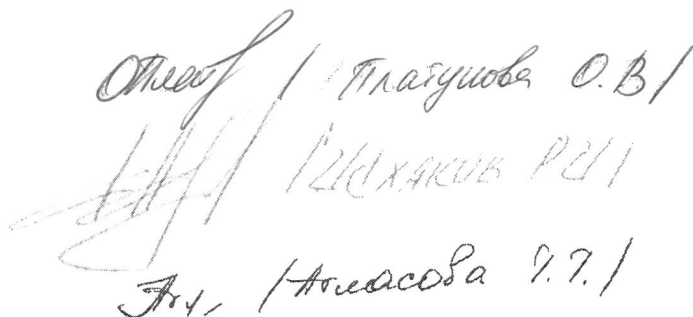 / Платунова О.В/
/Исхаков Р.И/
/Атласова Г.Г./